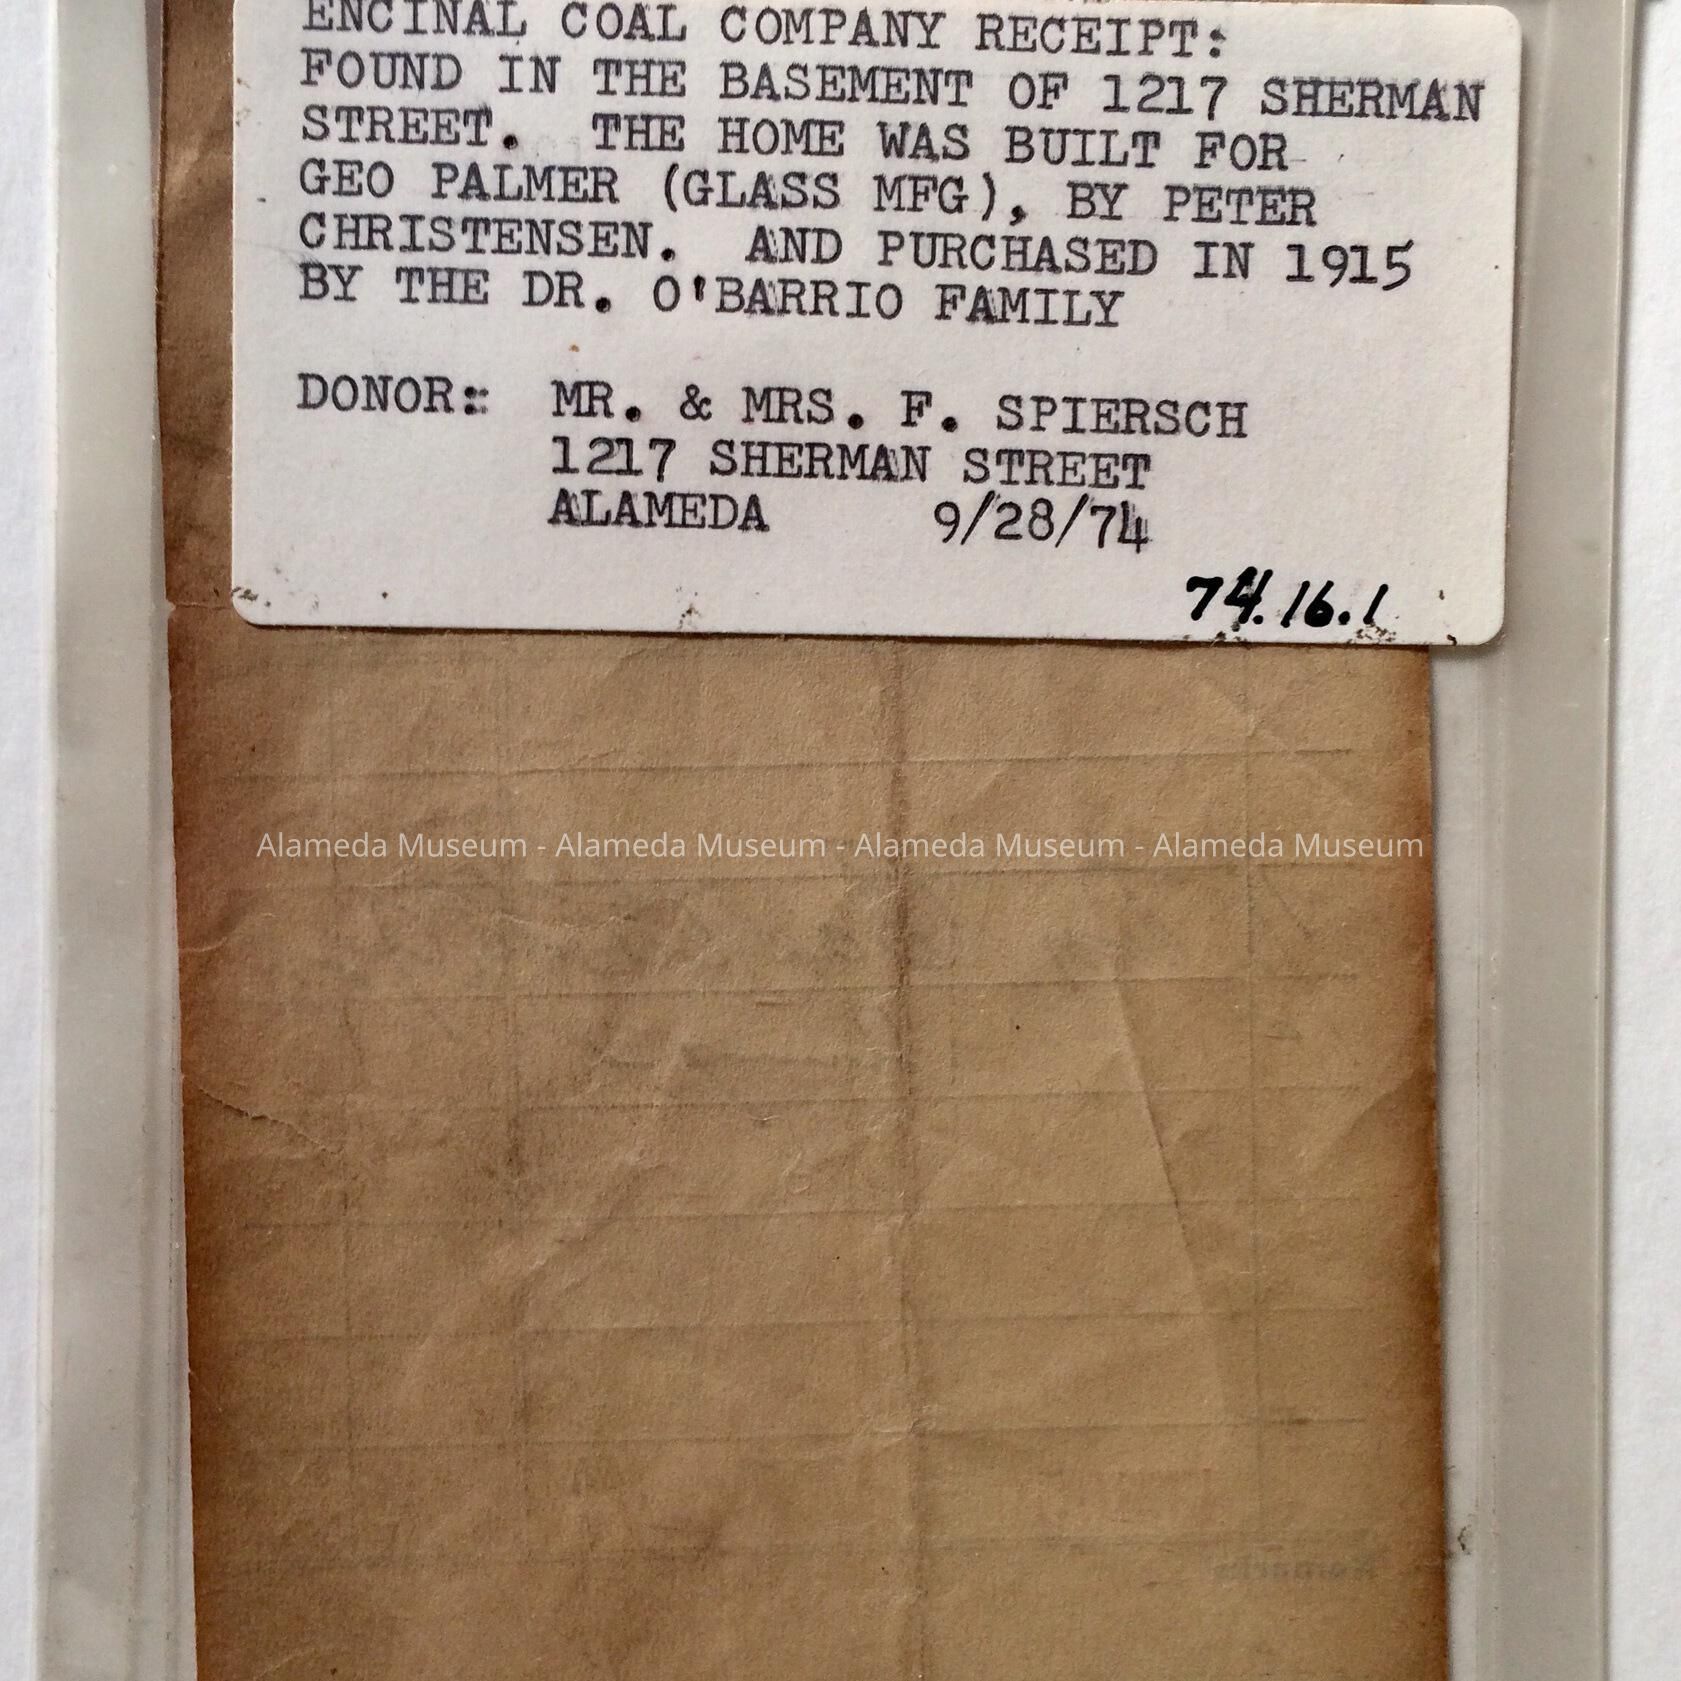 ENCINAL COAL COMPANY RECEIPT:
FOUND IN THE BASEMENT OF 1217 SHERMAN
STREET. THE HOME WAS BUILT FOR
GEO PALMER (GLASS MFG), BY PETER
CHRISTENSEN. AND PURCHASED IN 1915
BY THE DR. O'BARRIO FAMILY
DONOR: MR. & MRS. F. SPIERSCH
1217 SHERMAN STREET
ALAMEDA 9/28/74
74.16.1
Alameda Museum - Alameda Museum - Alameda Museum - Alameda Museum